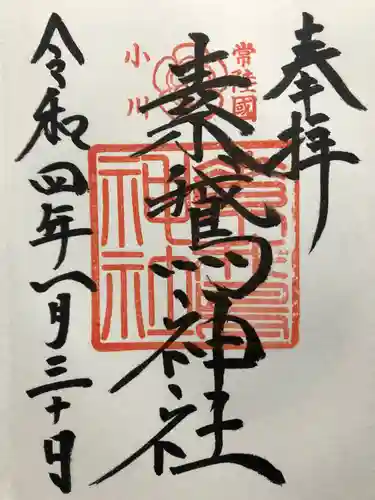 奉拝
常陸國
小川
素鵞神社
令和四年八月三十日